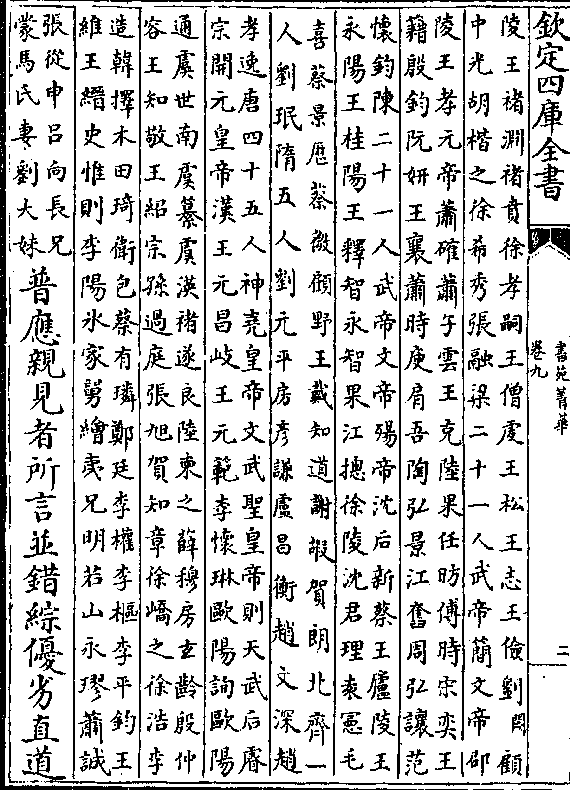 欽定四庫全書
書苑菁華
卷九
二
陵王褚淵褚賁徐孝嗣王僧虔王松王志王儉劉顧
中光胡楷之徐希秀張融梁二十一人武帝簡文帝邵
陵王孝元帝蕭確蕭子雲王克陸果任昉傅時宋奕王
籍殷鈞阮妍王襃蕭時庾肩吾陶弘景江奮周弘讓范
懷鈞陳二十一人武帝文帝殤帝沈后新蔡王廬陵王
永陽王桂陽王釋智永智果江摠徐陵沈君理袁憲毛
喜蔡景歴蔡徵顧野王戴知道謝嘏賀朗北齊一
人劉珉隋五人劉元平房彦謙盧昌衡趙文深趙
孝逸唐四十五人神堯皇帝文武聖皇帝則天武后睿
宗開元皇帝漢王元昌岐王元範李懷琳歐陽詢歐陽
通虞世南虞纂虞漢褚遂良陸柬之薛穆房玄齡殷仲
容王知敬王紹宗孫過庭張旭賀知章徐嶠之徐浩李
造韓擇木田琦衛包蔡有璘鄭廷李權李樞李平鈞王
維王縉史惟則李陽氷家舅繪夷兄明若山永璆蕭誠
張從申吕向長兄
蒙馬氏妻劉大妹
普應親見者所言並錯綜優劣直道